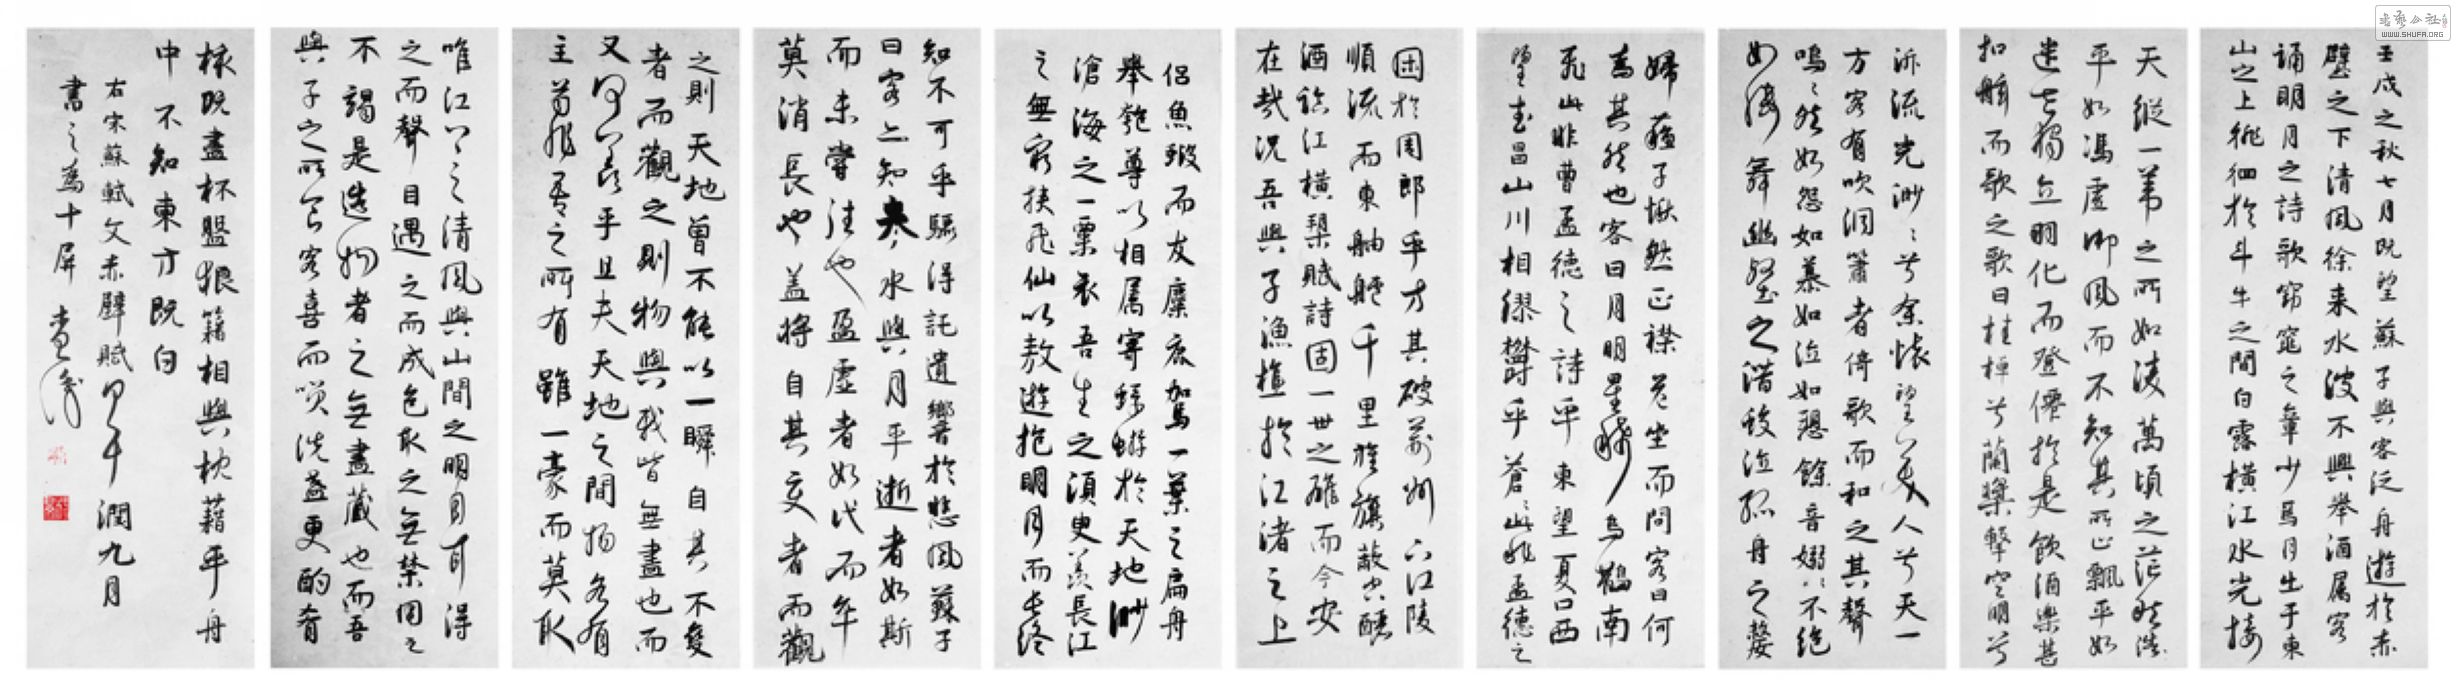 壬戌之秋七月既望蘇子與客泛舟遊於赤
壁之下清風徐来水波不興舉酒属客
誦明月之詩歌窈窕之章少焉月出于東
山之上徘徊於斗牛之間白露橫江水光接
天縱一葦之所如凌萬頃之茫然浩
平如馮虚御風而不知其所止飄乎如
遗世獨立羽化而登僊於是飲酒樂甚
扣舷而歌之歌曰桂棹兮蘭槳擊空明兮
泝流光渺〻兮余懷望美人兮天一
方客有吹洞簫者倚歌而和之其聲
嗚〻然如怨如慕如泣如愬餘音嫋〻不绝
如縷舞幽壑之潛蛟泣孤舟之嫠
婦蘇子愀然正襟危坐而問客曰何
為其然也客曰月明星稀烏鵲南
飛此非曹孟德之詩乎東望夏口西
望武昌山川相繆欝乎蒼〻此非孟德之
困於周郎乎方其破荊州下江陵
順流而東舳艫千里旌旗蔽空釃
酒臨江横槊賦詩固一世之雄而今安
在哉況吾與子漁樵於江渚之上
侣魚蝦而友麋鹿駕一葉之扁舟
舉匏尊以相属寄蜉蝣於天地渺
滄海之一粟哀吾生之須臾羨長江
之無窮挟飛仙以敖遊抱明月而長终
知不可乎驟得託遺響於悲風蘇子
曰客亦知夫水與月乎逝者如斯
而未嘗往也盈虚者如代而卒
莫消長也盖将自其变者而觀
之則天地曾不能以一瞬自其不變
者而觀之則物與我皆無盡也而
又何羡乎且夫天地之間物各有
主苟非吾之所有雖一豪而莫取
唯江上之清風與山間之明月耳得
之而聲目遇之而成色取之無禁用之
不竭是造物者之無盡藏也而吾
與子之所食客喜而唉洗盏更酌肴
核既盡杯盤狼籍相與枕藉乎舟
中不知東方既白
右宋蘇軾文赤壁賦甲午潤九月
書之為十屏
書藝公社
WWW.SHUFA.ORG